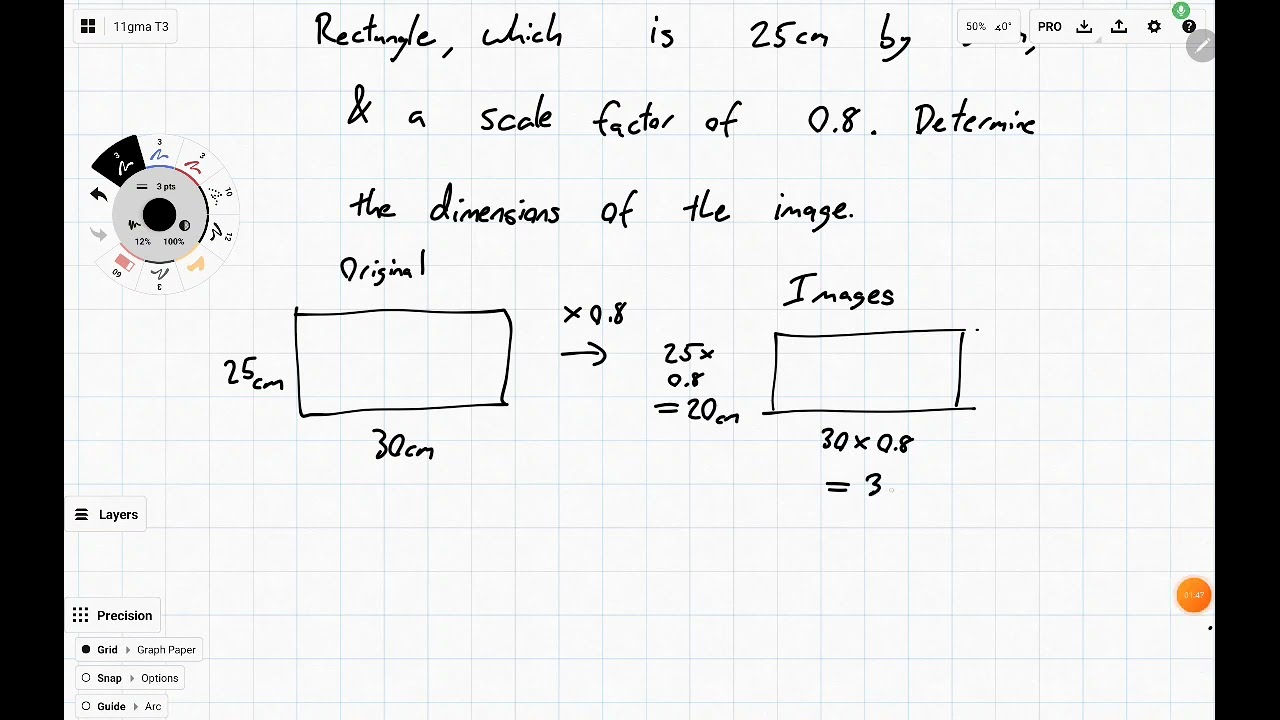 11gma T3
50% 0°
PRO
Rectangle, which is 25cm by
& a scale factor of 0.8. Determine
the dimensions of the image.
3
3
3
3 pts
10
12
12% 100%
60
3
Original
Images
× 0.8
25cm
25×
0.8
= 20cm
30cm
30 × 0.8
= 3
Layers
01:47
Precision
Grid Graph Paper
Snap Options
Guide Arc